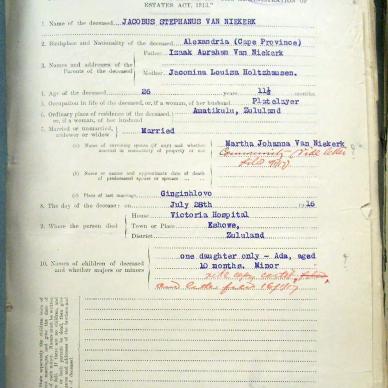 ESTATES ACT, 1913."
1. Name of the deceased JACOBUS STEPHANUS VAN NIEKERK
2. Birthplace and Nationality of the deceased Alexandria (Cape Province)
3. Names and addresses of the Parents of the deceased
Father Izaak Abraham Van Niekerk
Mother Jaconina Louisa Holtzhausen.
4. Age of the deceased 26 years 11½ months
5. Occupation in life of the deceased, or, if a woman, of her husband Platelayer
6. Ordinary place of residence of the deceased, or, if a woman, of her husband Amatikulu, Zululand
7. Married or unmarried, widower or widow Married
(a) Name of surviving spouse (if any) and whether married in community of property or not Martha Johanna Van Niekerk
Community - Vide letter
filed
(b) Name or names and approximate date of death of predeceased spouse or spouses
(c) Place of last marriage Ginginhlovo
8. The day of the decease: on July 28th 1916
9. Where the person died
House Victoria Hospital
Town or Place Eshowe,
District Zululand
10. Names of children of deceased and whether majors or minors
one daughter only - Ada, aged
10 months. Minor